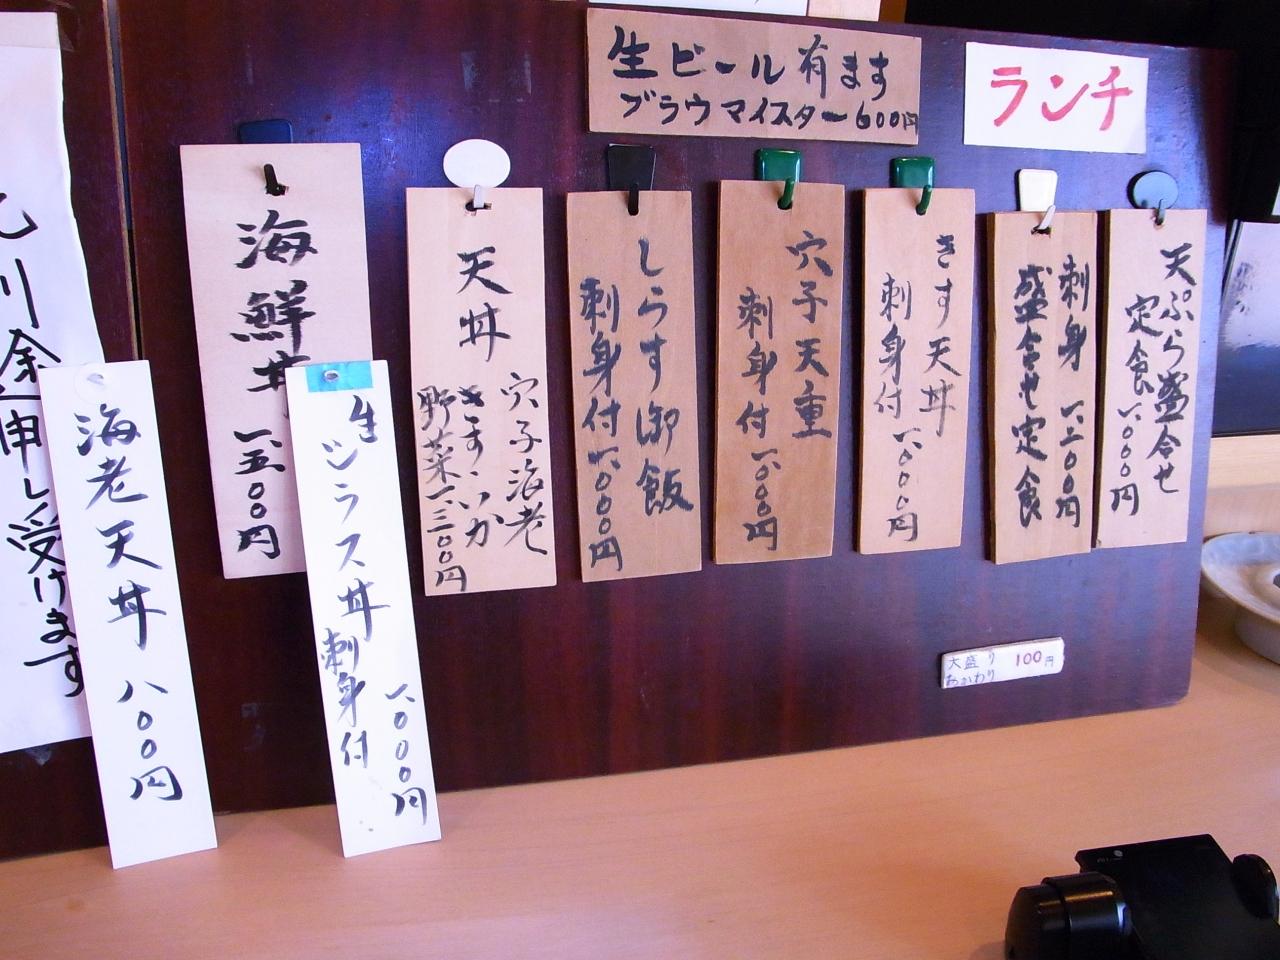 生ビール有ます
ブラウマイスター600円
ランチ
天ぷら盛合せ
定食一、〇〇〇円
刺身一、二〇〇円
盛合せ定食
きす天丼
刺身付一、〇〇〇円
穴子天重
刺身付一、〇〇〇円
しらす御飯
刺身付一、〇〇〇円
天丼
穴子海老
きす、いか
野菜一、三〇〇円
海鮮丼一、五〇〇円
生シラス丼
刺身付
一、〇〇〇円
海老天丼八〇〇円
川余
申し受けます
大盛り
おかわり
100円